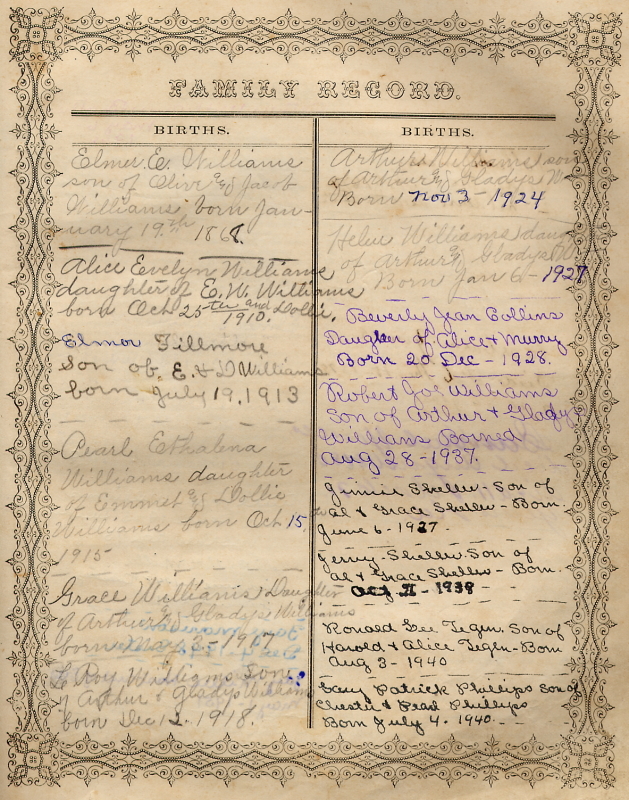 FAMILY RECORD.
BIRTHS.
Elmer E. Williams
son of Olive & Jacob
Williams born Jan-
uary 19.th 1868.
Alice Evelyn Williams
daughter of E. W. Williams
born Oct 25th and Dollie,
1910.
Elmor Fillmore
Son of E. & D Williams
born July 19, 1913
Pearl Ethalena
Williams daughter
of Emmet & Dollie
Williams born Oct 15,
1915
Grace Williams Daughter
of Arthur & Gladys Williams
born May 1917
La Roy Williams Son
of Arthur & Gladys William
born Dec 12. 1918.
BIRTHS.
Arthur Williams son
of Arthur & Gladys W
Born Nov 3 - 1924
Helen Williams daug
of Arthur & Gladys W
Born Jan 6 - 1927
Beverly Jean Collins
Daugher of Alice & Murry
Born 20 Dec - 1928.
Robert Joe Williams
Son of Arthur & Gladys
Williams Borned
Aug 28 - 1937.
Jimmie Sheller - Son of
al & Grace Sheller - Born
June 6 - 1937
Jerry Sheller. Son of
al & Grace Sheller - Born.
1938
Ronald Gee Tegen. Son of
Harold & Alice Tegen - Born
Aug 3 - 1940
Gary Patrick Phillips Son of
Chester & Pearl Phillips
Born July 4. 1940.